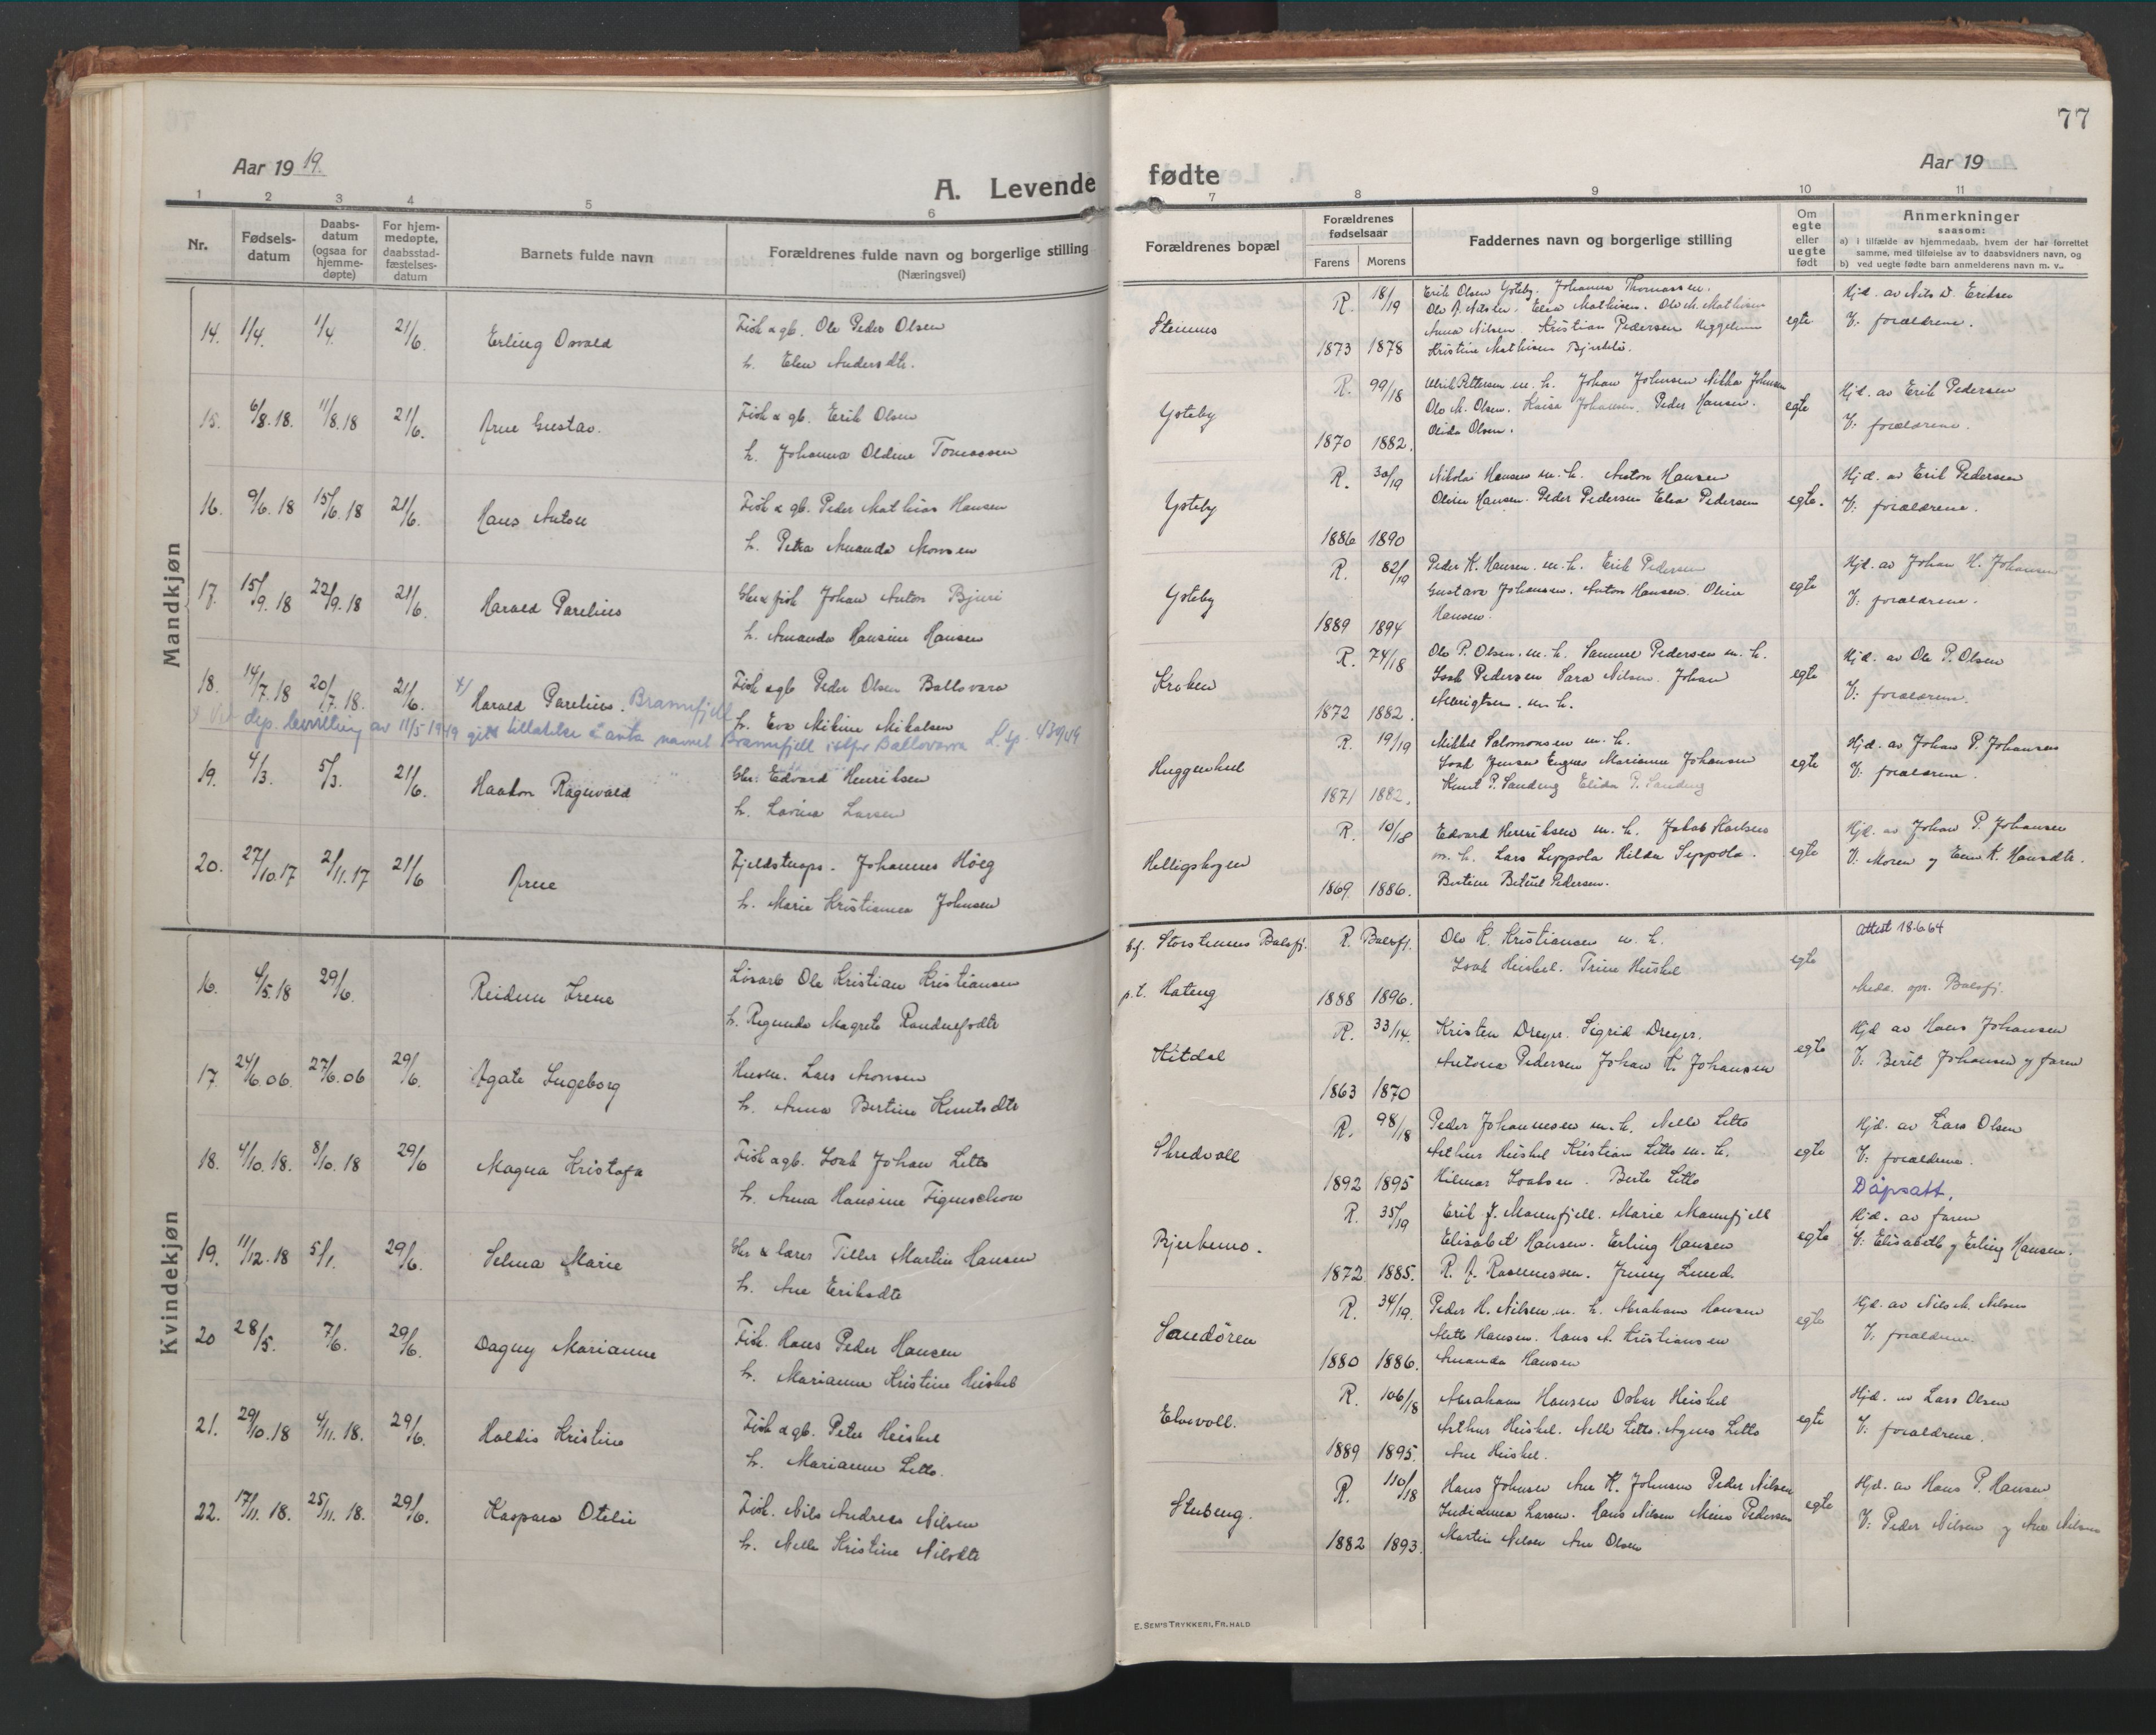 77
Aar 19 19.
A. Levende
fødte
Aar 19
1 2 3 4 5 6 7 8 9 10 11
Nr.
Fødsels-
datum
Daabs-
datum
(ogsaa for
hjemme-
døpte)
For hjem-
medøpte,
daabsstad-
fæstelses-
datum
Barnets fulde navn
Forældrenes fulde navn og borgerlige stilling
(Næringsvei)
Forældrenes bopæl
Forældrenes
fødselsaar
Farens Morens
Faddernes navn og borgerlige stilling
Om
egte
eller
uegte
født
Anmerkninger
saasom:
a) i tilfælde av hjemmedaab, hvem der har forrettet
samme, med tilføielse av to daabsvidners navn, og
b) ved uegte fødte barn anmelderens navn m. v..
Mandkjøn
14. 1/4. 1/4. 21/6. Erling Osvald
Fisk & gb. Ole Peder Olsen
h. Elen Andersdtr.
Steinnes
R. 18/19
1873 1878
Erik Olsen Yoteby. Johanna Thomassen.
Ole A. Nilsen. Elea Mathisen. Ole M. Mathisen
Anna Nilsen. Kristian Pedersen
Kristine Mathisen
egte
Hjd. av Nils D. Eriksen
V: forældrene.
15. 6/8.18. 11/8.18 21/6. Arne Gustav.
Fisk & gb. Erik Olsen
h. Johanna Oldine Tomassen
Yoteby
R. 99/18
1870 1882.
Ulrik Pettersen m. h. Johan Johnsen Nikka Johnsen
Ole M. Olsen. Kaisa Johansen. Peder Hansen.
Olida Olsen.
egte
Hjd. av Erik Pedersen
V: forældrene.
16. 9/6.18 15/6.18 21/6. Hans Anton
Fisk & gb. Peder Mathias Hansen
h. Petra Amanda Monsen
Yoteby
R. 30/19
1886 1890
Nikolai Hansen m. h. Anton Hansen
Oline Hansen. Peder Pedersen Elea Pedersen
egte.
Hjd. av Erik Pedersen
V: forældrene.
17. 15/9.18 22/9.18 21/6. Harald Parelius
Gbr & fisk Johan Anton Bjuri
h. Amanda Hansine Hansen
Yoteby
R. 82/19
1889 1894
Peder K. Hansen. m. h. Erik Pedersen
Gustava Johansen. Anton Hansen. Oline
Hansen.
egte
Hjd. av Johan H. Johansen
V: forældrene.
18. 14/7.18 20/7.18. 21/6. x) Harald Parelius. Brannfjell
Fisk & gb Peder Olsen Ballovara
h. Eva Mikine Mikalsen
x Ved dep. bevilling av 11/5 1949 gitt tillatelse å anta navnet Brannfjell istfor Ballovarra L.sp. 439/49
Kroken
R. 74/18
1872 1882.
Ole P. Olsen. m. h. Samuel Pedersen m. h.
Isak Pedersen Sara Nilsen. Johan
m. h.
egte
Hjd. av Ole P. Olsen
V: forældrene.
19. 4/3. 5/3. 21/6. Haakon Ragnvald
Gbr. Edvard Henriksen
h. Lovisa Larsen
R. 19/19
1871 1882.
Mikkel Salomonsen m. h.
Isak Jensen Engnes Marianne Johansen
Knut P. Sandeng Elida P. Sandeng
egte
Hjd. av Johan P. Johansen
V: forældrene.
20. 27/10.17 2/11.17 21/6 Arne
Fjeldstueops. Johannes Höeg
h. Marie Kristianna Johnsen
Helligskogen
R. 10/18
1869. 1886.
Edvard Henriksen m. h. Jakob Karlsen
m. h. Lars Seppola Hilda Seppola.
Bertine Betuel Pedersen.
egte
Hjd. av Johan P. Johansen
V. Moren og K. Hansdtr.
Kvindekjøn
16. 4/5.18 29/6. Reidun Irene
Lösarb Ole Kristian Kristiansen
h. Regunda Magrete
bf. Storstennes Balsfj.
p.t. Hateng
R. Balsfj.
1888 1896.
Ole K. Kristiansen m. h.
Isak Heiskel. Trine Heiskel
egte
Attest 18.6.64
Medd. spr. Balsfj.
17. 24/6.06. 27/6.06 29/6. Agate Ingeborg
Husm. Lars Monsen
h. Anna Bertine Knutsdtr
Kitdal
R. 33/14.
1863 1870
Kristen Dreyer. Sigrid Dreyer.
Antona Pedersen Johan K. Johansen
egte
Hjd av Hans Johansen
V: Berit Johansen og faren
18. 4/10.18. 8/10.18 29/6 Magna Kristofa
Fisk & gb. Isak Johan Letto
h. Anna Hansine Figenschou
Skredvoll
R. 98/18
1892 1895
Peder Johannesen m. h. Nella Letto
Arthur Heiskel Kristian Letto m. h.
Hilmar Isaksen. Berte Letto
egte
Hjd. av Lars Olsen
V: forældrene.
Dåpsatt.
19. 11/12.18 5/1. 29/6. Selma Marie
Gbr & lærer Tiller Martin Hansen
h. Ane Eriksdtr
R. 35/19
1872 1885.
Erik J. Mannfjell. Marie Mannfjell
Elisabet Hansen. Erling Hansen
R. A. Rasmussen. Jenny Lund.
egte
Hjd. av faren
V: Elisabeth og Erling Hansen.
20 28/5. 7/6. 29/6. Dagny Marianne
Fisk. Hans Peder Hansen
h. Marianne Kristine Heiskel
Sandören
R. 34/19.
1880 1886.
Peder H. Nilsen m. h. Abraham Hansen
Mette Hansen. Hans A. Kristiansen
Amanda Hansen
egte
Hjd. av Nils M. Nilsen
V. forældrene.
21. 29/10.18 4/11.18. 29/6. Haldis Kristine
Fisk & gb. Peter Heiskel
h. Marianne Letto.
Elvevoll.
R. 106/18
1889 1895.
Abraham Hansen Oskar Heiskel
Arthur Heiskel. Nella Letto. Agnes Letto
Ane Heiskel.
egte
Hjd. av Lars Olsen
V: forældrene.
22. 17/11.18. 25/11.18. 29/6. Kaspara Otelie
Fisk. Nils Andreas Nilsen
h. Nella Kristine Nilsdtr
Stubeng.
R. 110/18
1882 1893.
Hans Johnsen Ane K. Johnsen Peder Nilsen
Indianna Larsen. Hans Nilsen Mina Pedersen
Martin Nilsen Ane Olsen
egte
Hjd. av Hans P. Hansen
V: Peder Nilsen og Ane Nilsen
E. SEM'S TRYKKERI, FR.HALD